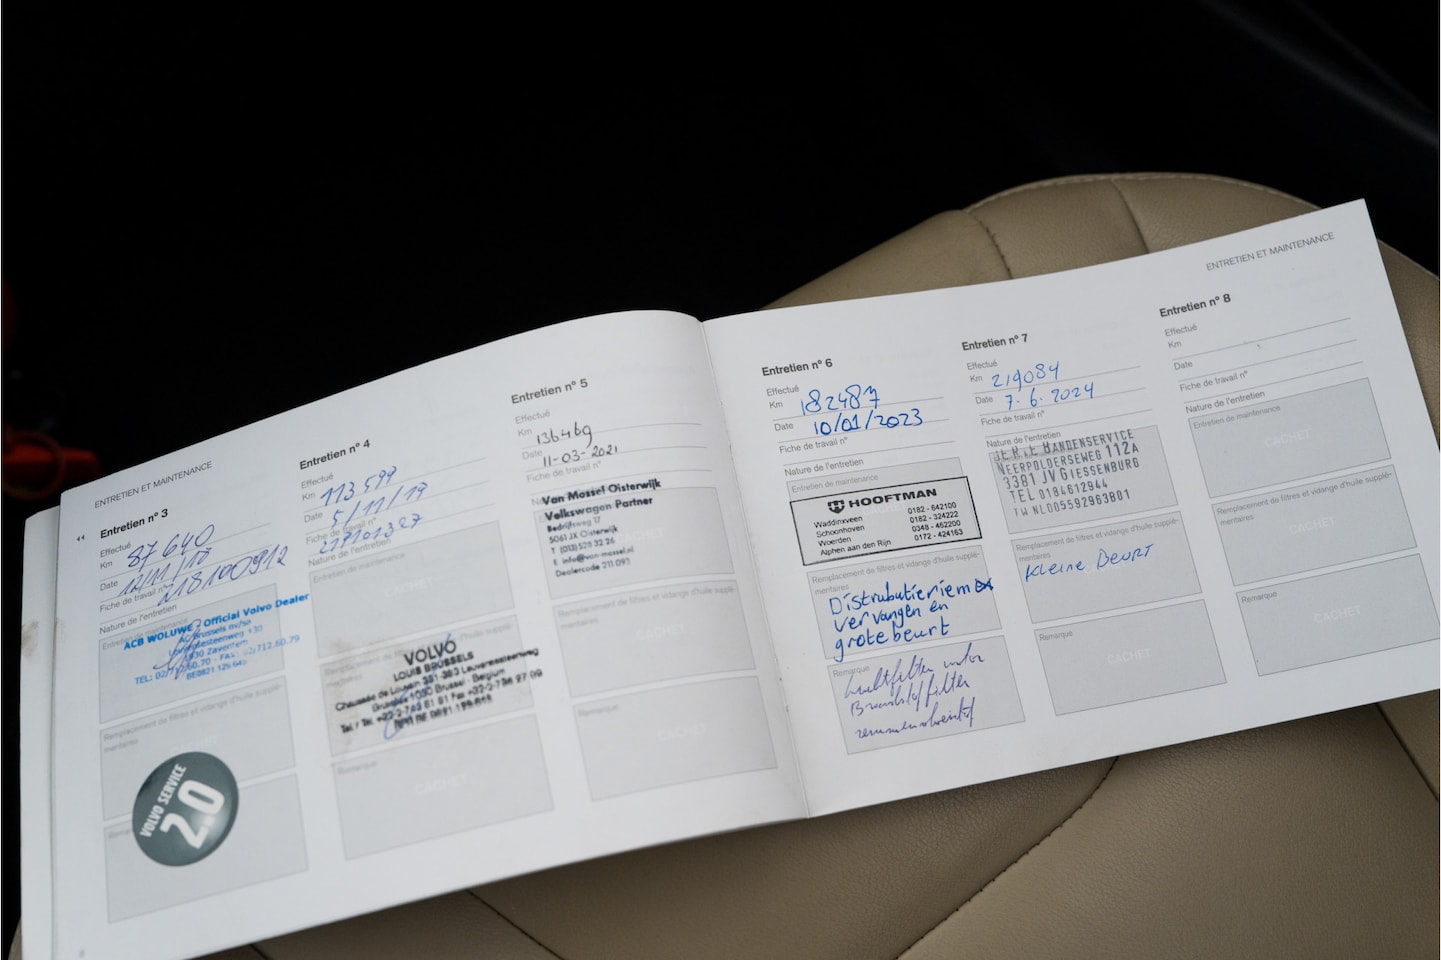 ENTRETIEN ET MAINTENANCE
Entretien n° 3
Effectué
Km 87 640
Date 12/11/18
Fiche de travail n°
Nature de l'entretien
Entretien de maintenance
ACB WOLUWE - Official Volvo Dealer
Remplacement de filtres et vidange d'huile supplé-
mentaires
VOLVO SERVICE
2.0
8
Entretien n° 4
Effectué
Km 113 599
Date 5/11/19
Fiche de travail n°
Nature de l'entretien
Entretien de maintenance
CACHET
VOLVO
LOUIS BRUSSELS
Chaussée de Louvain 381-383 Leuvensesteenweg
Remarque
CACHET
Entretien n° 5
Effectué
Km 136469
Date 11-03-2021
Fiche de travail n°
Van Mossel Oisterwijk
Volkswagen Partner
Bedrijfsweg 17
5061 JX Oisterwijk
T (013) 523 32 26
E info@van-mossel.nl
Dealercode 211 093
CACHET
Remplacement de filtres et vidange d'huile supplé-
mentaires
CACHET
Remarque
CACHET
ENTRETIEN ET MAINTENANCE
Entretien n° 6
Effectué
Km 182487
Date 10/01/2023
Fiche de travail n°
Nature de l'entretien
Entretien de maintenance
HOOFTMAN
Waddinxveen 0182 - 642100
Schoonhoven 0182 - 324222
Woerden 0348 - 462200
Alphen aan den Rijn 0172 - 424163
Remplacement de filtres et vidange d'huile supplé-
mentaires
Distrubutieriem
vervangen en
grote beurt
Remarque
Luchtfilter
Brandstoffilter
Entretien n° 7
Effectué
Km 219084
Date 7.6.2024
Fiche de travail n°
Nature de l'entretien
BANDENSERVICE
NEERPOLDERSEWEG 112A
3381 JV GIESSENBURG
TEL 0184612944
NL005592963B01
Remplacement de filtres et vidange d'huile supplé-
mentaires
Kleine Beurt
Remarque
CACHET
Entretien n° 8
Effectué
Km
Date
Fiche de travail n°
Nature de l'entretien
Entretien de maintenance
CACHET
Remplacement de filtres et vidange d'huile supplé-
mentaires
CACHET
Remarque
CACHET